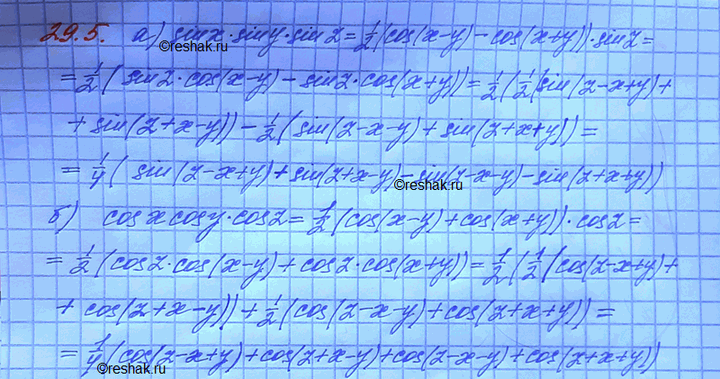 29.5. а) sinx·siny·sinz = 1/2(cos(x-y) - cos(x+y))·sinz =
©reshak.ru
= 1/2(sinz·cos(x-y) - sinz·cos(x+y)) = 1/2(1/2(sin(z-x+y) +
+ sin(z+x-y)) - 1/2(sin(z-x-y) + sin(z+x+y)) =
= 1/4(sin(z-x+y) + sin(z+x-y) - sin(z-x-y) - sin(z+x+y))
©reshak.ru
б) cosx cosy·cosz = 1/2(cos(x-y) + cos(x+y))·cosz =
= 1/2(cosz·cos(x-y) + cosz·cos(x+y)) = 1/2(1/2(cos(z-x+y) +
+ cos(z+x-y)) + 1/2(cos(z-x-y) + cos(z+x+y)) =
= 1/4(cos(z-x+y) + cos(z+x-y) + cos(z-x-y) + cos(z+x+y))
©reshak.ru